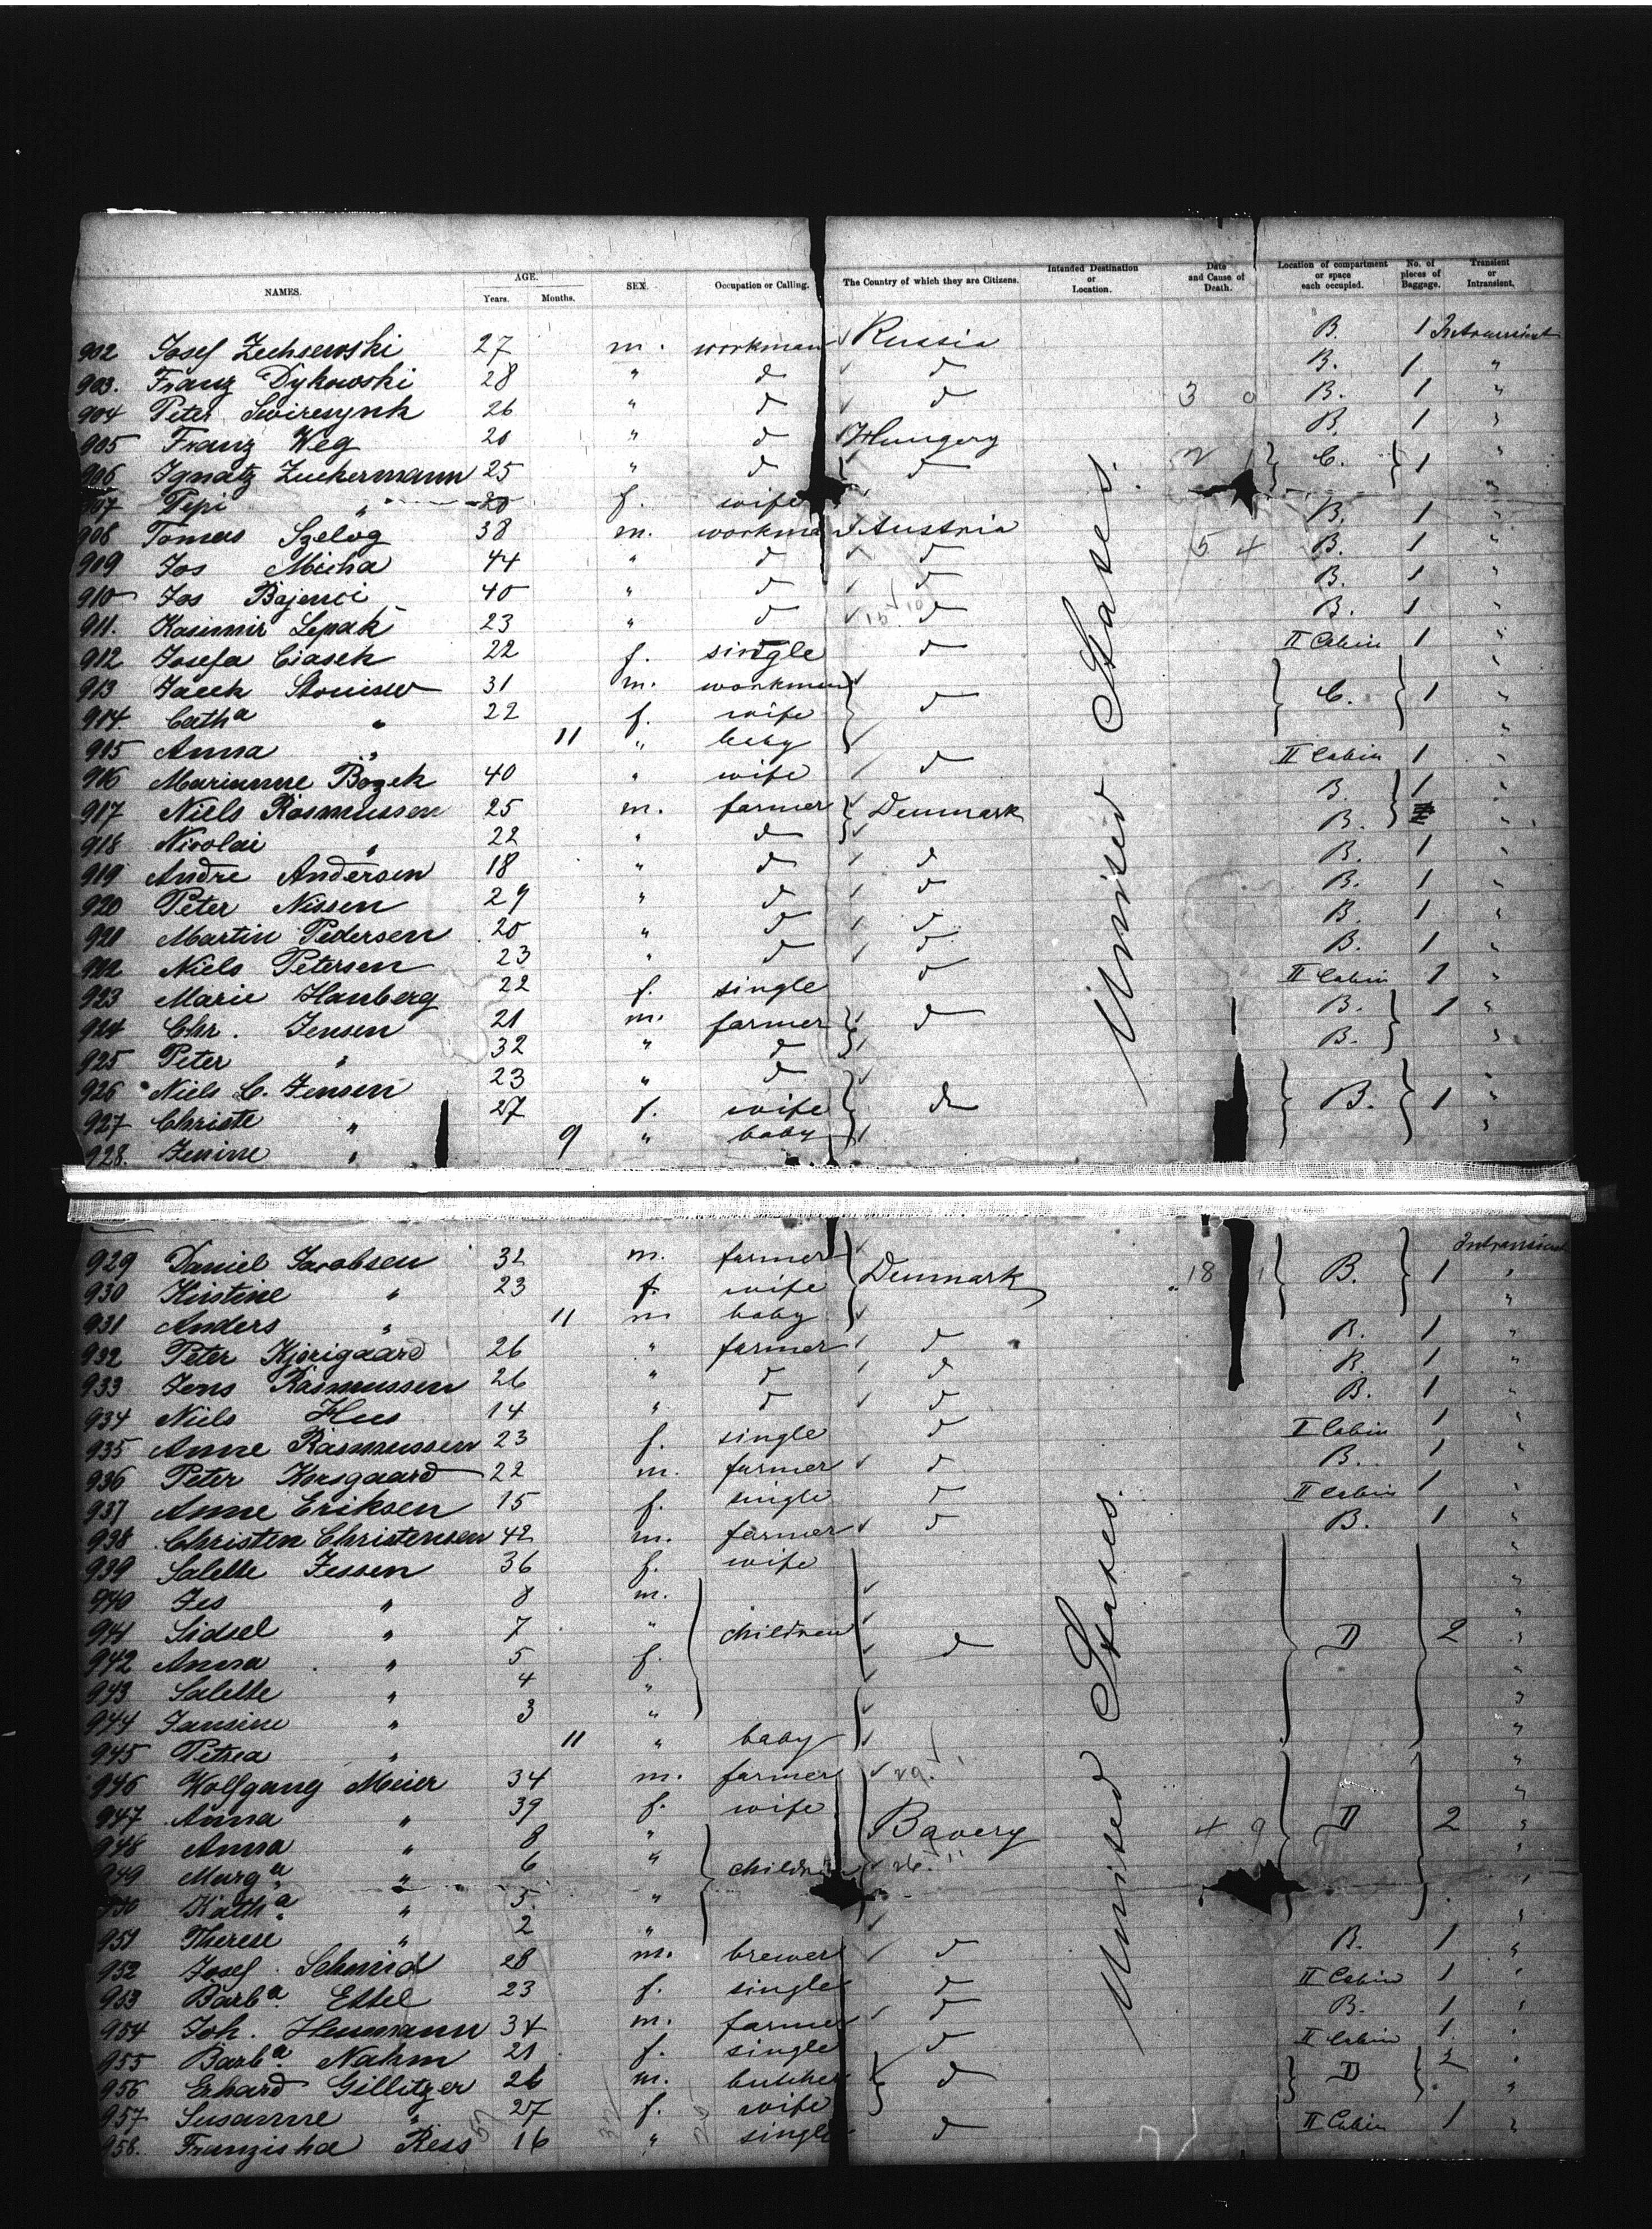 NAMES. AGE. Years. Months. SEX. Occupation or Calling. The Country of which they are Citizens. Intended Destination or Location. Date and Cause of Death. Location of compartment or space each occupied. No. of pieces of Baggage. Transient or Intransient.
902 Josef 27 m. workman Russia B. 1 Intransient
903. Franz Dykowski 28 " d d B. 1 "
904 Peter 26 " d d 3 0 B. 1 "
905 Franz Weg 20 " d Hungery B. 1 "
906 Ignatz Zuckermann 25 " d d C. 1 "
907 Pepi " 20 f. wife "
908 Tomas Szelog 38 m. workma Austria B. 1 "
909 Jos Micha 44 " d d 5 4 B. 1 "
910 Jos 40 " d d B. 1 "
911. Kasimir Lepak 23 " d d B. 1 "
912 Josefa Ciasek 22 f. single d II Cabin 1 "
913 31 m. workman d C. 1 "
914. Catha " 22 f. wife "
915 Anna " 11 " baby "
916 Marianne Bozek 40 " wife d II Cabin 1 "
917 Niels Rasmussen 25 m. farmer Denmark B. 1 "
918 Nicolai " 22 " d B. "
919 Andre Andersen 18 " d d B. 1 "
920 Peter Nissen 29 " d d B. 1 "
921 Martin Pedersen 20 " d d B. 1 "
922 Niels Petersen 23 " d d B. 1 "
923 Marie Hanberg 22 f. single d II Cabin 1 "
924 Chr. Jensen 21 m. farmer d B. 1 "
925 Peter " 32 " d B. "
926 Niels C. Jensen 23 " d d B. 1 "
927 Christe " 27 f. wife "
928. Jenine " 9 " baby "
United States.
929 Daniel Jacobsen 32 m. farmer Denmark 18 1 B. 1 Intransient
930 Kirstine " 23 f. wife "
931 Anders " 11 m baby "
932 Peter 26 " farmer d B. 1 "
933 Jens Rasmussen 26 " d d B. 1 "
934 Niels 14 " d d B. 1 "
935 Anne Rasmussen 23 f. single d II Cabin 1 "
936 Peter Korsgaard 22 m. farmer d B. 1 "
937 Anne Eriksen 15 f. single d II Cabin 1 "
938 Christen Christensen 42 m. farmer d B. 1 "
939 Salette Jessen 36 f. wife "
940 Jes " 8 m. "
941 Sidsel " 7 " children d D 2 "
942 Anna " 5 f. "
943 Salette " 4 " "
944 Jansine " 3 " "
945 Petrea " 11 " baby "
946 Wolfgang Meier 34 m. farmer "
947 Anna " 39 f. wife Bavery 4 9 D 2 "
948 Anna " 8 " "
949 Marga " 6 " children "
950 Katha. " 5 " "
951 Therese " 2 " "
952 Josef Schmid 28 m. brewer d B. 1 "
953 Barba. Ettel 23 f. single d II Cabin 1 "
954 Joh. Heumann 34 m. farmer d B. 1 "
955 Barba. Nahm 21 f. single d II Cabin 1 "
956 Erhard Gillitzer 26 m. butcher d D 2 "
957 Susanne " 27 f. wife "
958. Franziska Ress 16 " single d II Cabin 1 "
United States.